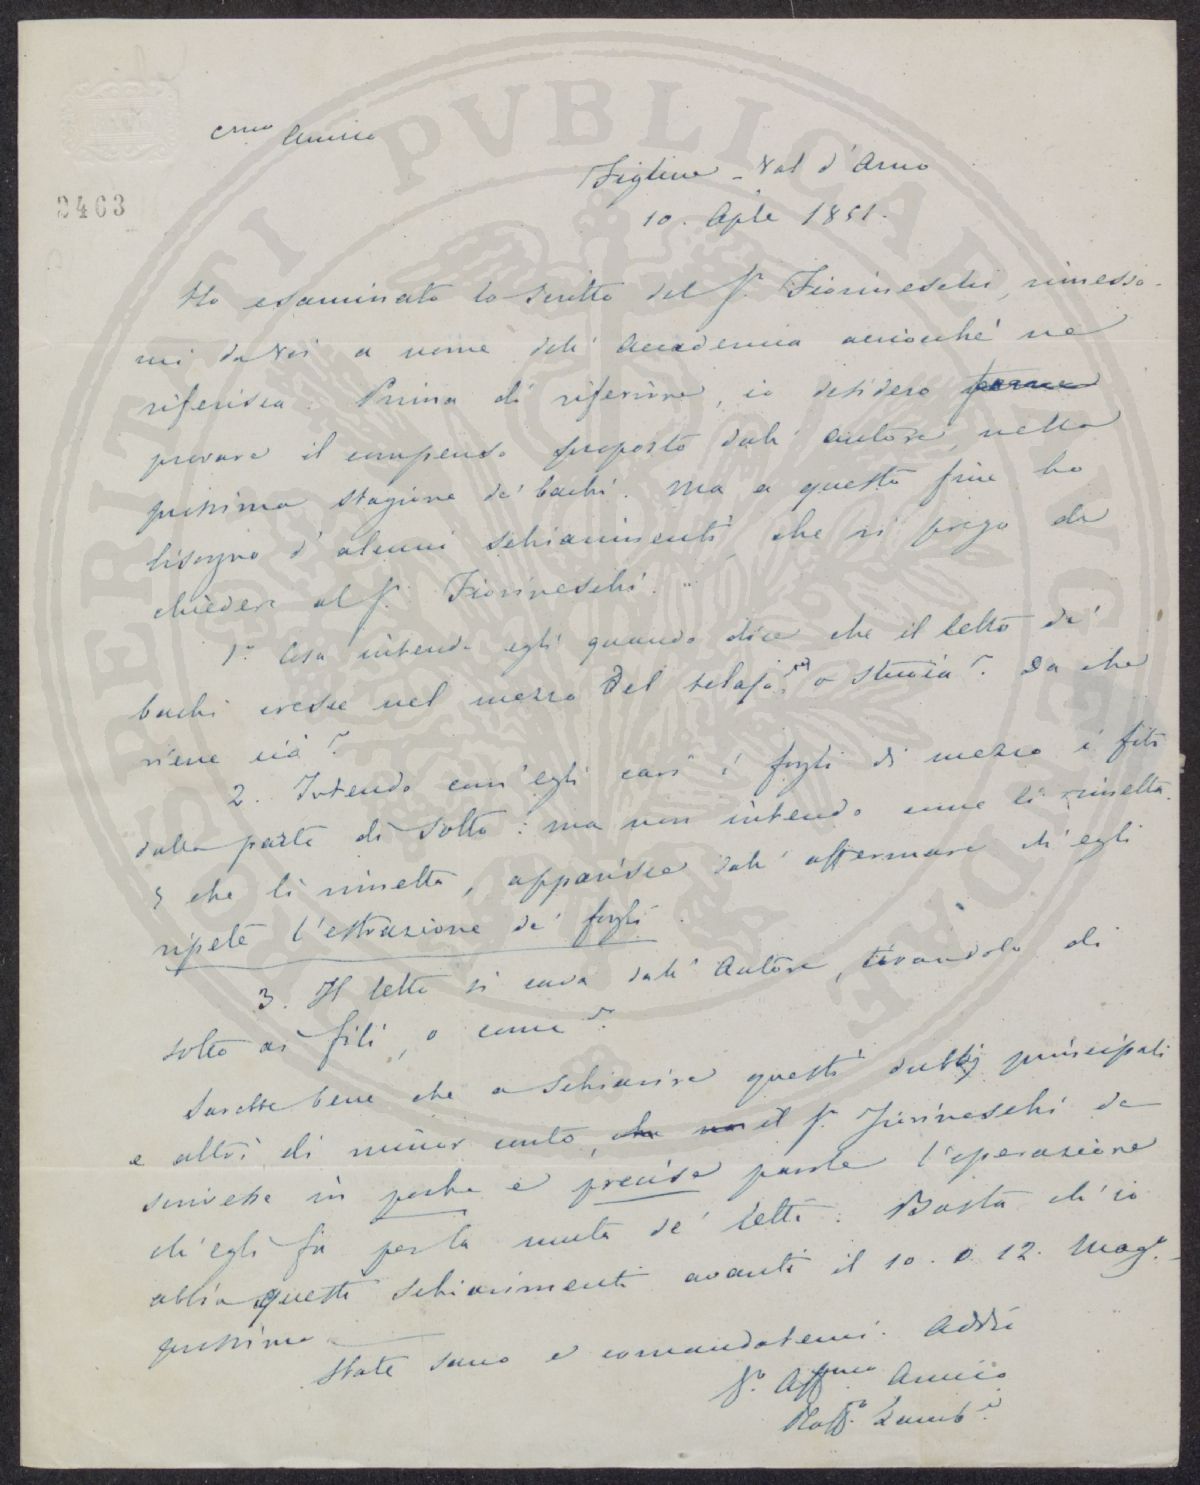 C.mo Amico
Figline - Val d'Arno
10. Aple 1851.
2463
Ho esaminato lo scritto del Sr. Fiorineschi, rimesso-
mi da Voi a nome dell' Accademia acciocché ne
riferisca. Prima di riferirne, io desidero farne
provare il compenso proposto dall' autore, nella
prossima stagione de' bachi. Ma a questo fine ho
bisogno d' alcuni schiarimenti, che vi prego di
chiedere al Sr. Fiorineschi.
1.° Cosa intenda egli quando dice che il letto de'
bachi cresce nel mezzo del telajo, o stuoia? Da che
viene ciò?
2. Intendo com' egli cavi i fogli di mezzo i fili
dalla parte di sotto: ma non intendo come li rimetta.
E che li rimetta, apparisce dall' affermare ch' egli
ripete l'estrazione de' fogli.
3. Il letto si cava dall' Autore, tirandolo di
sotto ai fili, o come?
Sarebbe bene che a schiarire questi dubbj principali
e altri di minor conto, che il Sr. Fiorineschi de-
scrivesse in poche e precise parole l'operazione
ch' egli fa per la muta de' letti. Basta ch' io
abbia questi schiarimenti avanti il 10. o 12. Mago.
prossimo.
State sano e comandatemi. Addio
Vo. Affmo Amico
Raffo. Lambe.